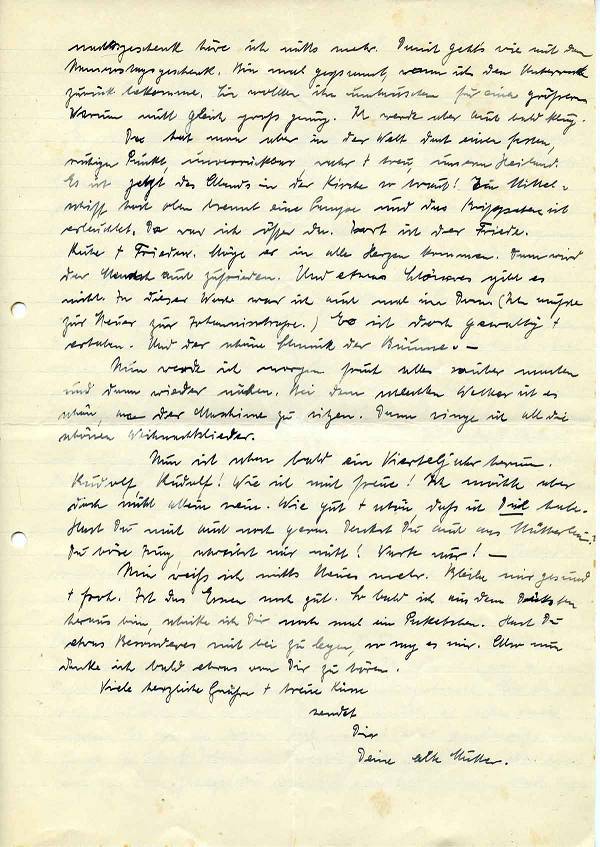 nachtsgeschenk höre ich nichts mehr. Damit geht's wie mit dem
Namenstagsgeschenk. Bin mal gespannt, wann ich den Unterrock
zurück bekomme. Sie wollten ihn umtauschen für eine größeren
Warum nicht gleich groß genug. Ich werde aber auch bald klug.
Da hat man aber in der Welt doch einen festen,
ruhigen Punkt, unverrückbar, wahr + treu, unsern Heiland.
Es ist jetzt des Abends in der Kirche so traut! Im Mittel-
schiff hoch oben brennt eine Lampe und das Krippchen ist
erleuchtet. Da war ich öfter da. Dort ist der Friede.
Ruhe + Frieden. Möge er in alle Herzen kommen. Dann wird
der Mensch auch zufrieden. Und etwas Schöneres gibt es
nicht. In dieser Woche war ich auch mal im Dom (Ich mußte
zur Steuer zur Johannisstraße.) Es ist doch gewaltig +
erhaben. Und der schöne Schmuck der Bäume. –
Nun werde ich morgen früh alles sauber machen
und dann wieder nähen. Bei dem schlechten Wetter ist es
schön, an der Maschine zu sitzen. Dann singe ich all die
schönen Weihnachtslieder.
Nun ist schon bald ein Vierteljahr herum.
Rudolf, Rudolf! Wie ich mich freue! Ich möchte aber
doch nicht allein sein. Wie gut + schön, daß ich Dich habe.
Hast Du mich auch noch gern. Denkst Du auch ans Mütterlein?
Du böse Jung, schreibst mir nicht! Warte nur! –
Nun weiß ich nichts Neues mehr. Bleibe mir gesund
+ froh. Ist das Essen noch gut. So bald ich aus dem
heraus bin, schicke ich Dir noch mal ein Paketchen. Hast Du
etwas Besonderes mit bei zu legen, so sag es mir. Aber nun
denke ich bald etwas von Dir zu hören.
Viele herzliche Grüße + treue Küsse
sendet
Dir
Deine alte Mutter.